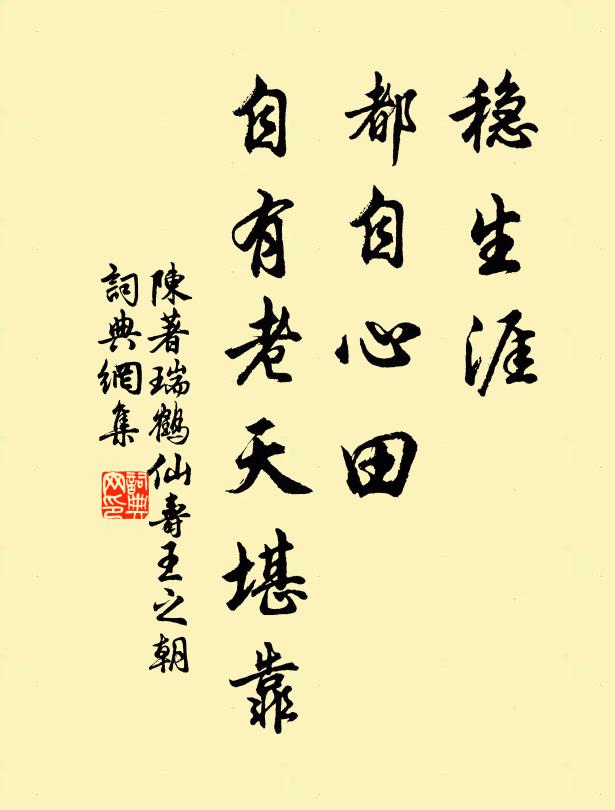 穩生涯
都自心田
自有老天堪靠
陳著瑞鶴仙壽王之朝
詞典網集
詞典
网印